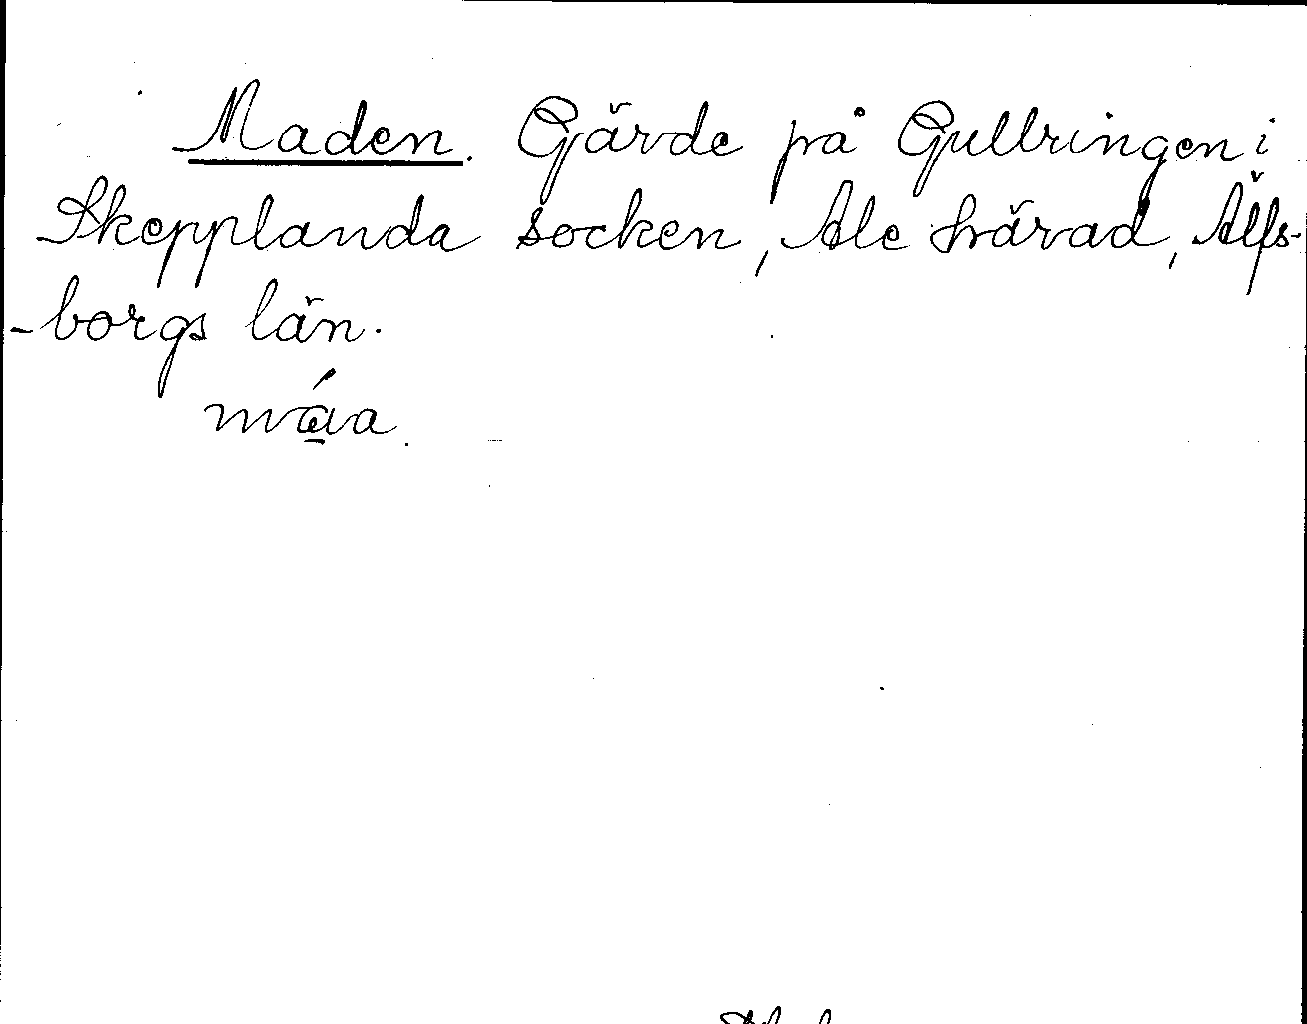 Maden. Gärde på Gullringen i
Skepplanda socken, Ale härad, Älfs-
-borgs län.